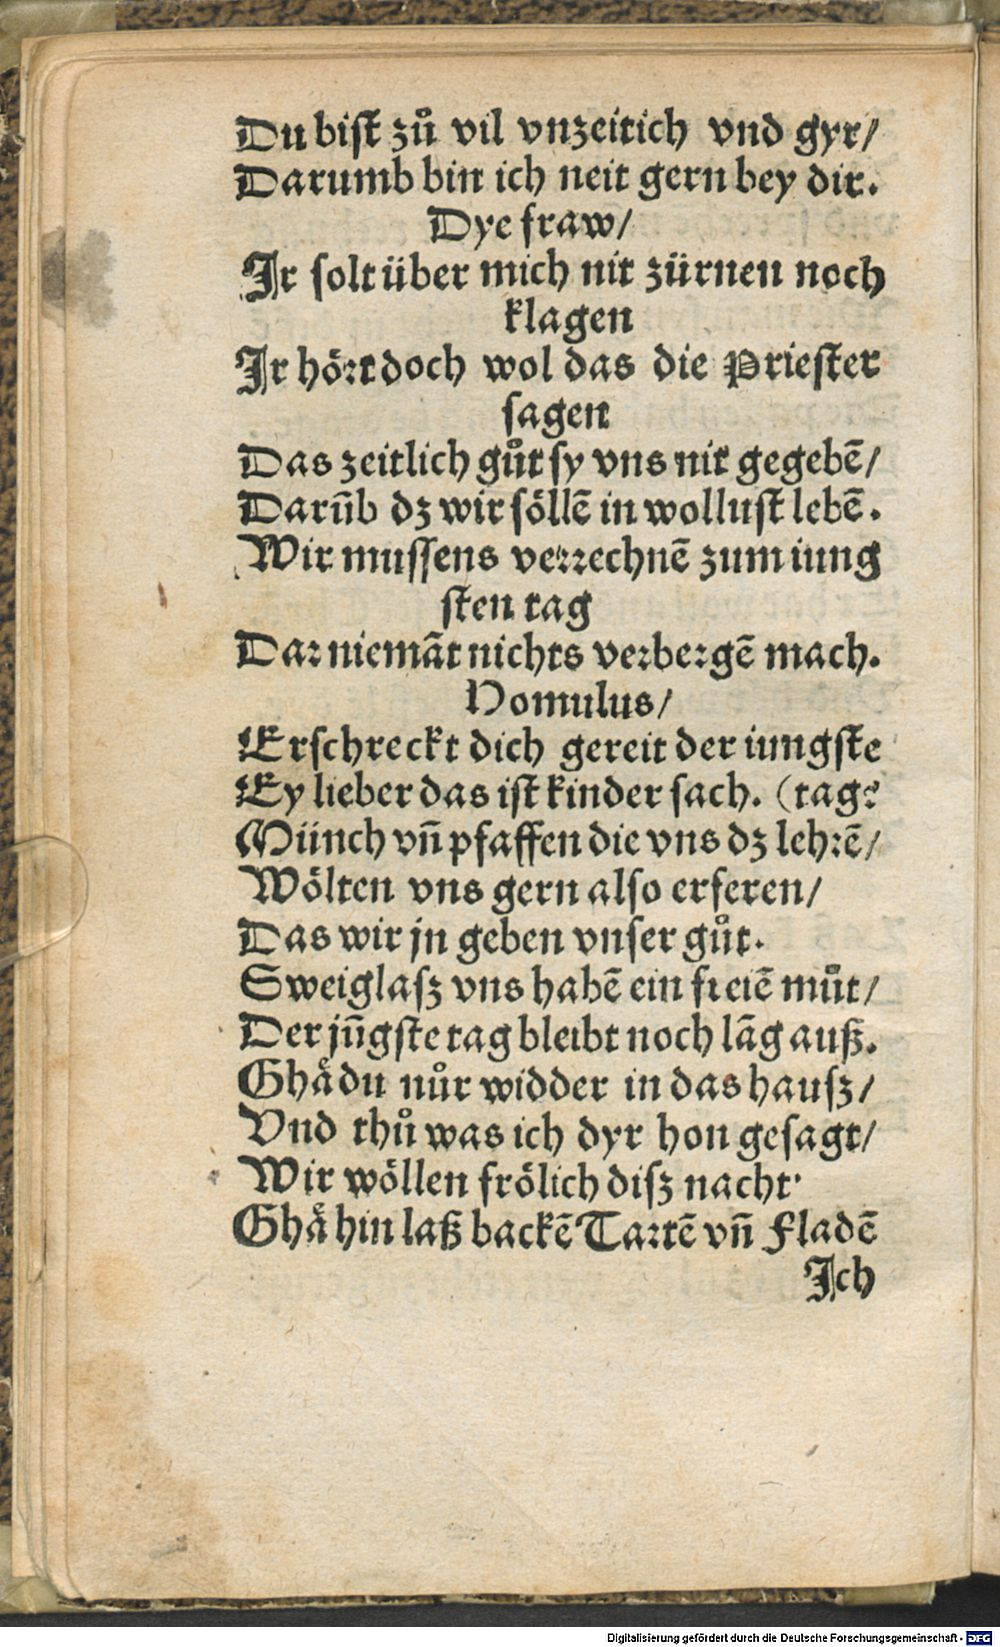 Du bist zů vil vnzeitich vnd gyr/
Darumb bin ich neit gern bey dir.
Dye fraw/
Jr solt über mich nit zürnen noch
klagen
Jr hört doch wol das die Priester
sagen
Das zeitlich gůt sy vns nit gegebē/
Darūb dz wir söllē in wollust lebē.
Wir mussens verrechnē zum iung
sten tag
Dar niemāt nichts verbergē mach.
Homulus/
Erschreckt dich gereit der iungste
Ey lieber das ist kinder sach. (tag?
Münch vñ pfaffen die vns dz lehrē/
Wölten vns gern also erferen/
Das wir jn geben vnser gůt.
Sweig lasz vns habē ein freiē můt/
Der jūgste tag bleibt noch lāg auß.
Ghå du nůr widder in das hausz/
Vnd thů was ich dyr hon gesagt/
Wir wöllen frölich disz nacht.
Ghå hin laß backē Tartē vñ Fladē
Jch
Digitalisierung gefördert durch die Deutsche Forschungsgemeinschaft - DFG